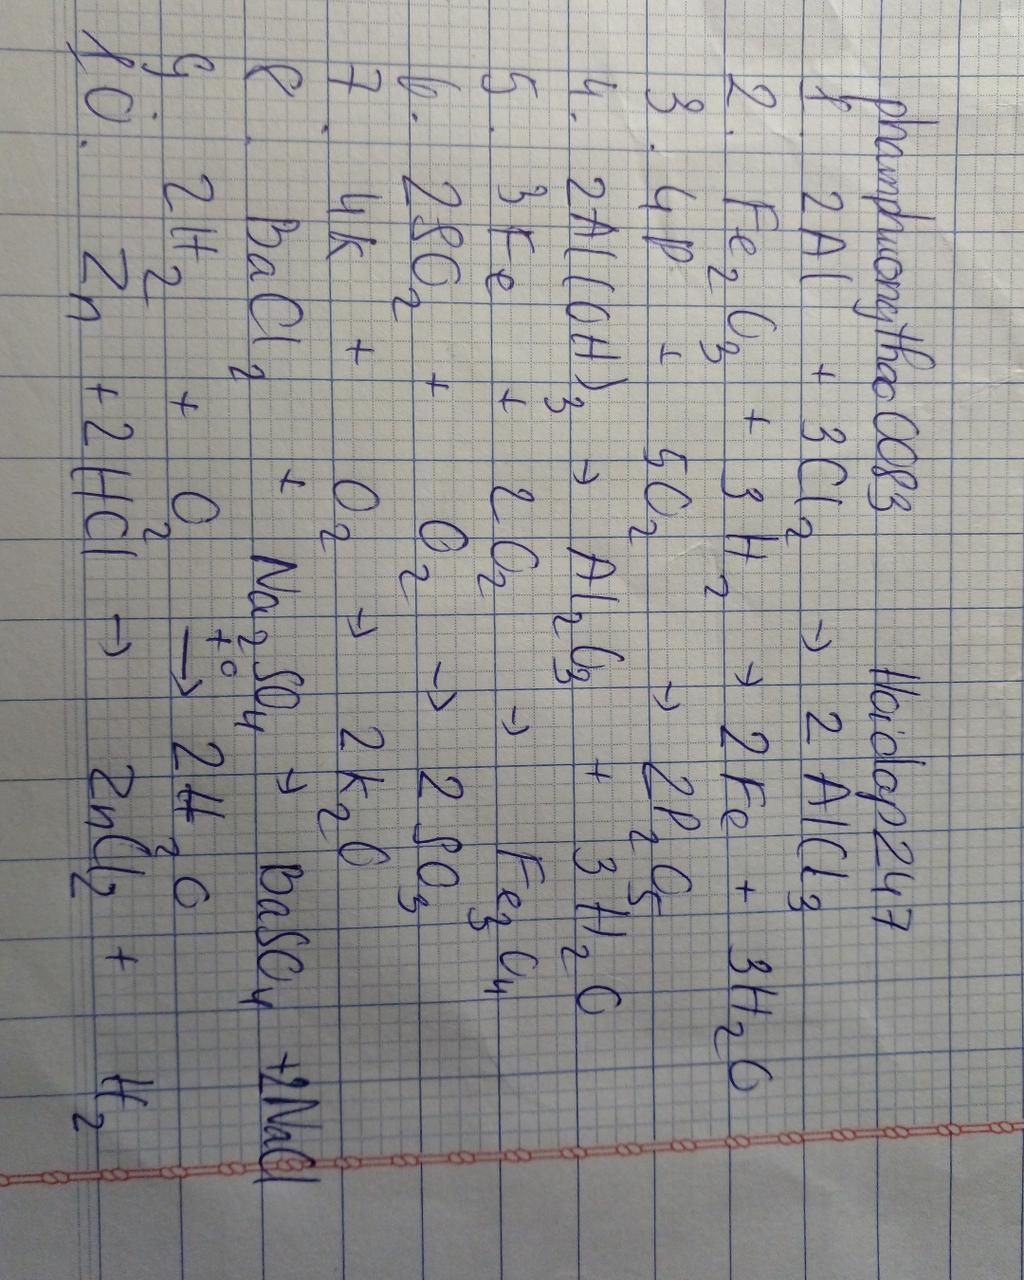 phamphuongthao0083 Hoidap247
1. 2Al + 3Cl₂ → 2AlCl₃
2. Fe₂O₃ + 3H₂ → 2Fe + 3H₂O
3. 4P + 5O₂ → 2P₂O₅
4. 2Al(OH)₃ → Al₂O₃ + 3H₂O
5. 3Fe + 2O₂ → Fe₃O₄
6. 2SO₂ + O₂ → 2SO₃
7. 4K + O₂ → 2K₂O
8. BaCl₂ + Na₂SO₄ → BaSO₄ + 2NaCl
9. 2H₂ + O₂ t° → 2H₂O
10. Zn + 2HCl → ZnCl₂ + H₂